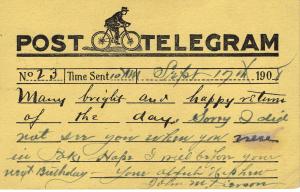 POST TELEGRAM
No 23 Time Sent Sept 17th 1908
Many bright and happy return
of the day. Sorry I did
not see you when you were
in Hope I will be for your
next Birthday - Your affect Nephew
John M